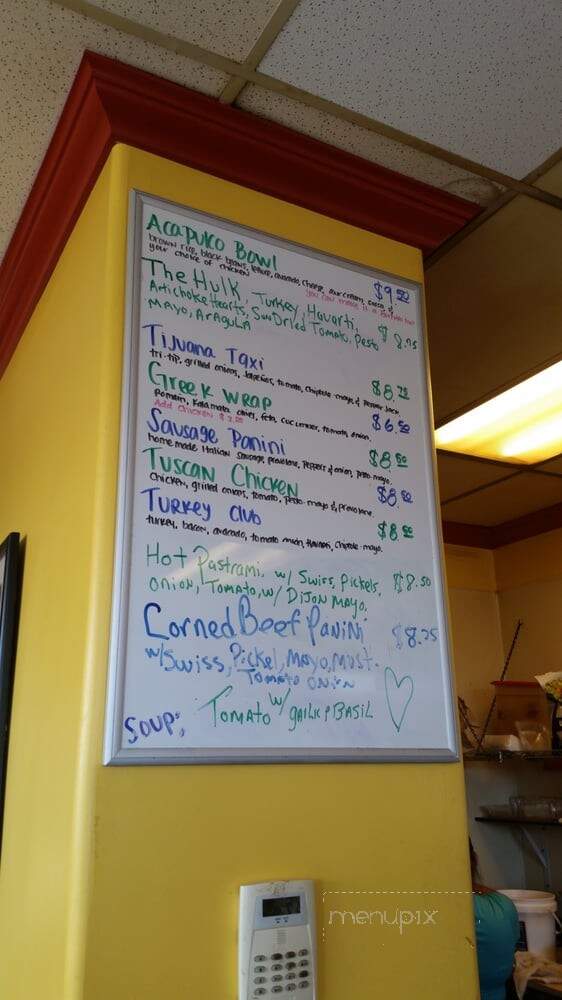 Acapulco Bowl
brown rice, black beans, lettuce, avocado, cheese, sour cream, salsa &
your choice of chicken $9.50
you can make it a
The Hulk, Turkey, Havarti,
Artichoke Hearts, Sun Dried Tomato, pesto
Mayo, Arugula $8.75
Tijuana Taxi
tri-tip, grilled onions, Jalapeños, tomato, Chipotle-mayo, & Pepper Jack. $8.75
Greek Wrap
Romain, Kalamata olives, feta, cucumber, tomato, onion. $6.50
Add chicken
Sausage Panini
home made Italian Sausage, provolone, Peppers & onion, pesto-mayo. $8.50
Tuscan Chicken
Chicken, grilled onions, tomato, pesto-mayo & provolone. $8.50
Turkey Club
turkey, bacon, avocado, tomato, Havarti, Chipotle-mayo. $8.50
Hot Pastrami, w/ Swiss, Pickels,
Onion, Tomato, w/ Dijon Mayo, $8.50
Corned Beef Panini $8.75
w/Swiss, Pickel, Mayo, Must.
Tomato onion
Soup: Tomato w/ garlic & Basil
menupix